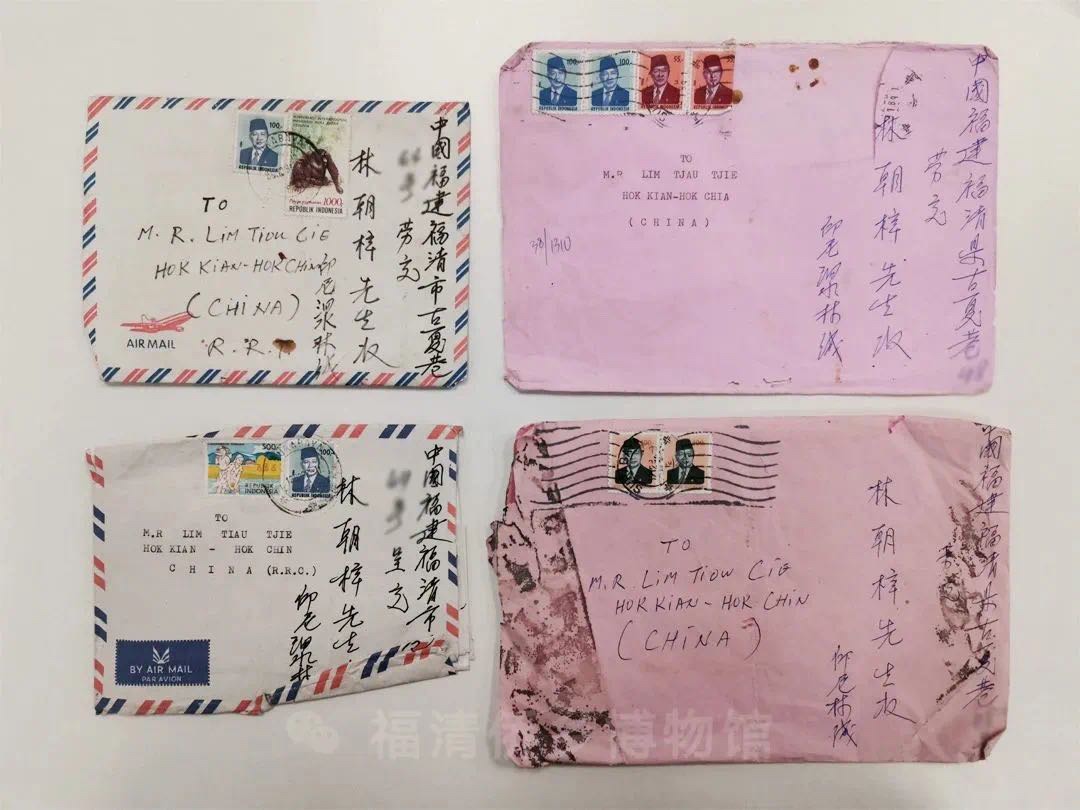 100-
1000-
REPUBLIK INDONESIA
TO
M.R. LIM TIOW CIE
HOK KIAN-HOK CHIN
(CHINA)
R.R.
AIR MAIL
中國福建福清市古夏巷
劳交
林朝梓先生收
印尼泗水林
100-
100-
55-
55-
REPUBLIK INDONESIA
REPUBLIK INDONESIA
REPUBLIK INDONESIA
REPUBLIK INDONESIA
TO
M.R LIM TJAU TJIE
HOK KIAN-HOK CHIA
(CHINA)
38/1310
中國福建福清県古夏巷
劳交
林朝梓先生收
印尼泗水林
300-
100-
REPUBLIK INDONESIA
REPUBLIK INDONESIA
TO
M.R LIM TIAU TJIE
HOK KIAN - HOK CHIN
CHINA (R.R.C.)
BY AIR MAIL
PAR AVION
中國福建福清市
呈交
林朝梓先生
印尼泗水林
TO
M.R. LIM TIOW CIE
HOK KIAN-HOK CHIN
(CHINA)
國福建福清県古夏巷
林朝梓先生收
印尼林
福清 博物馆